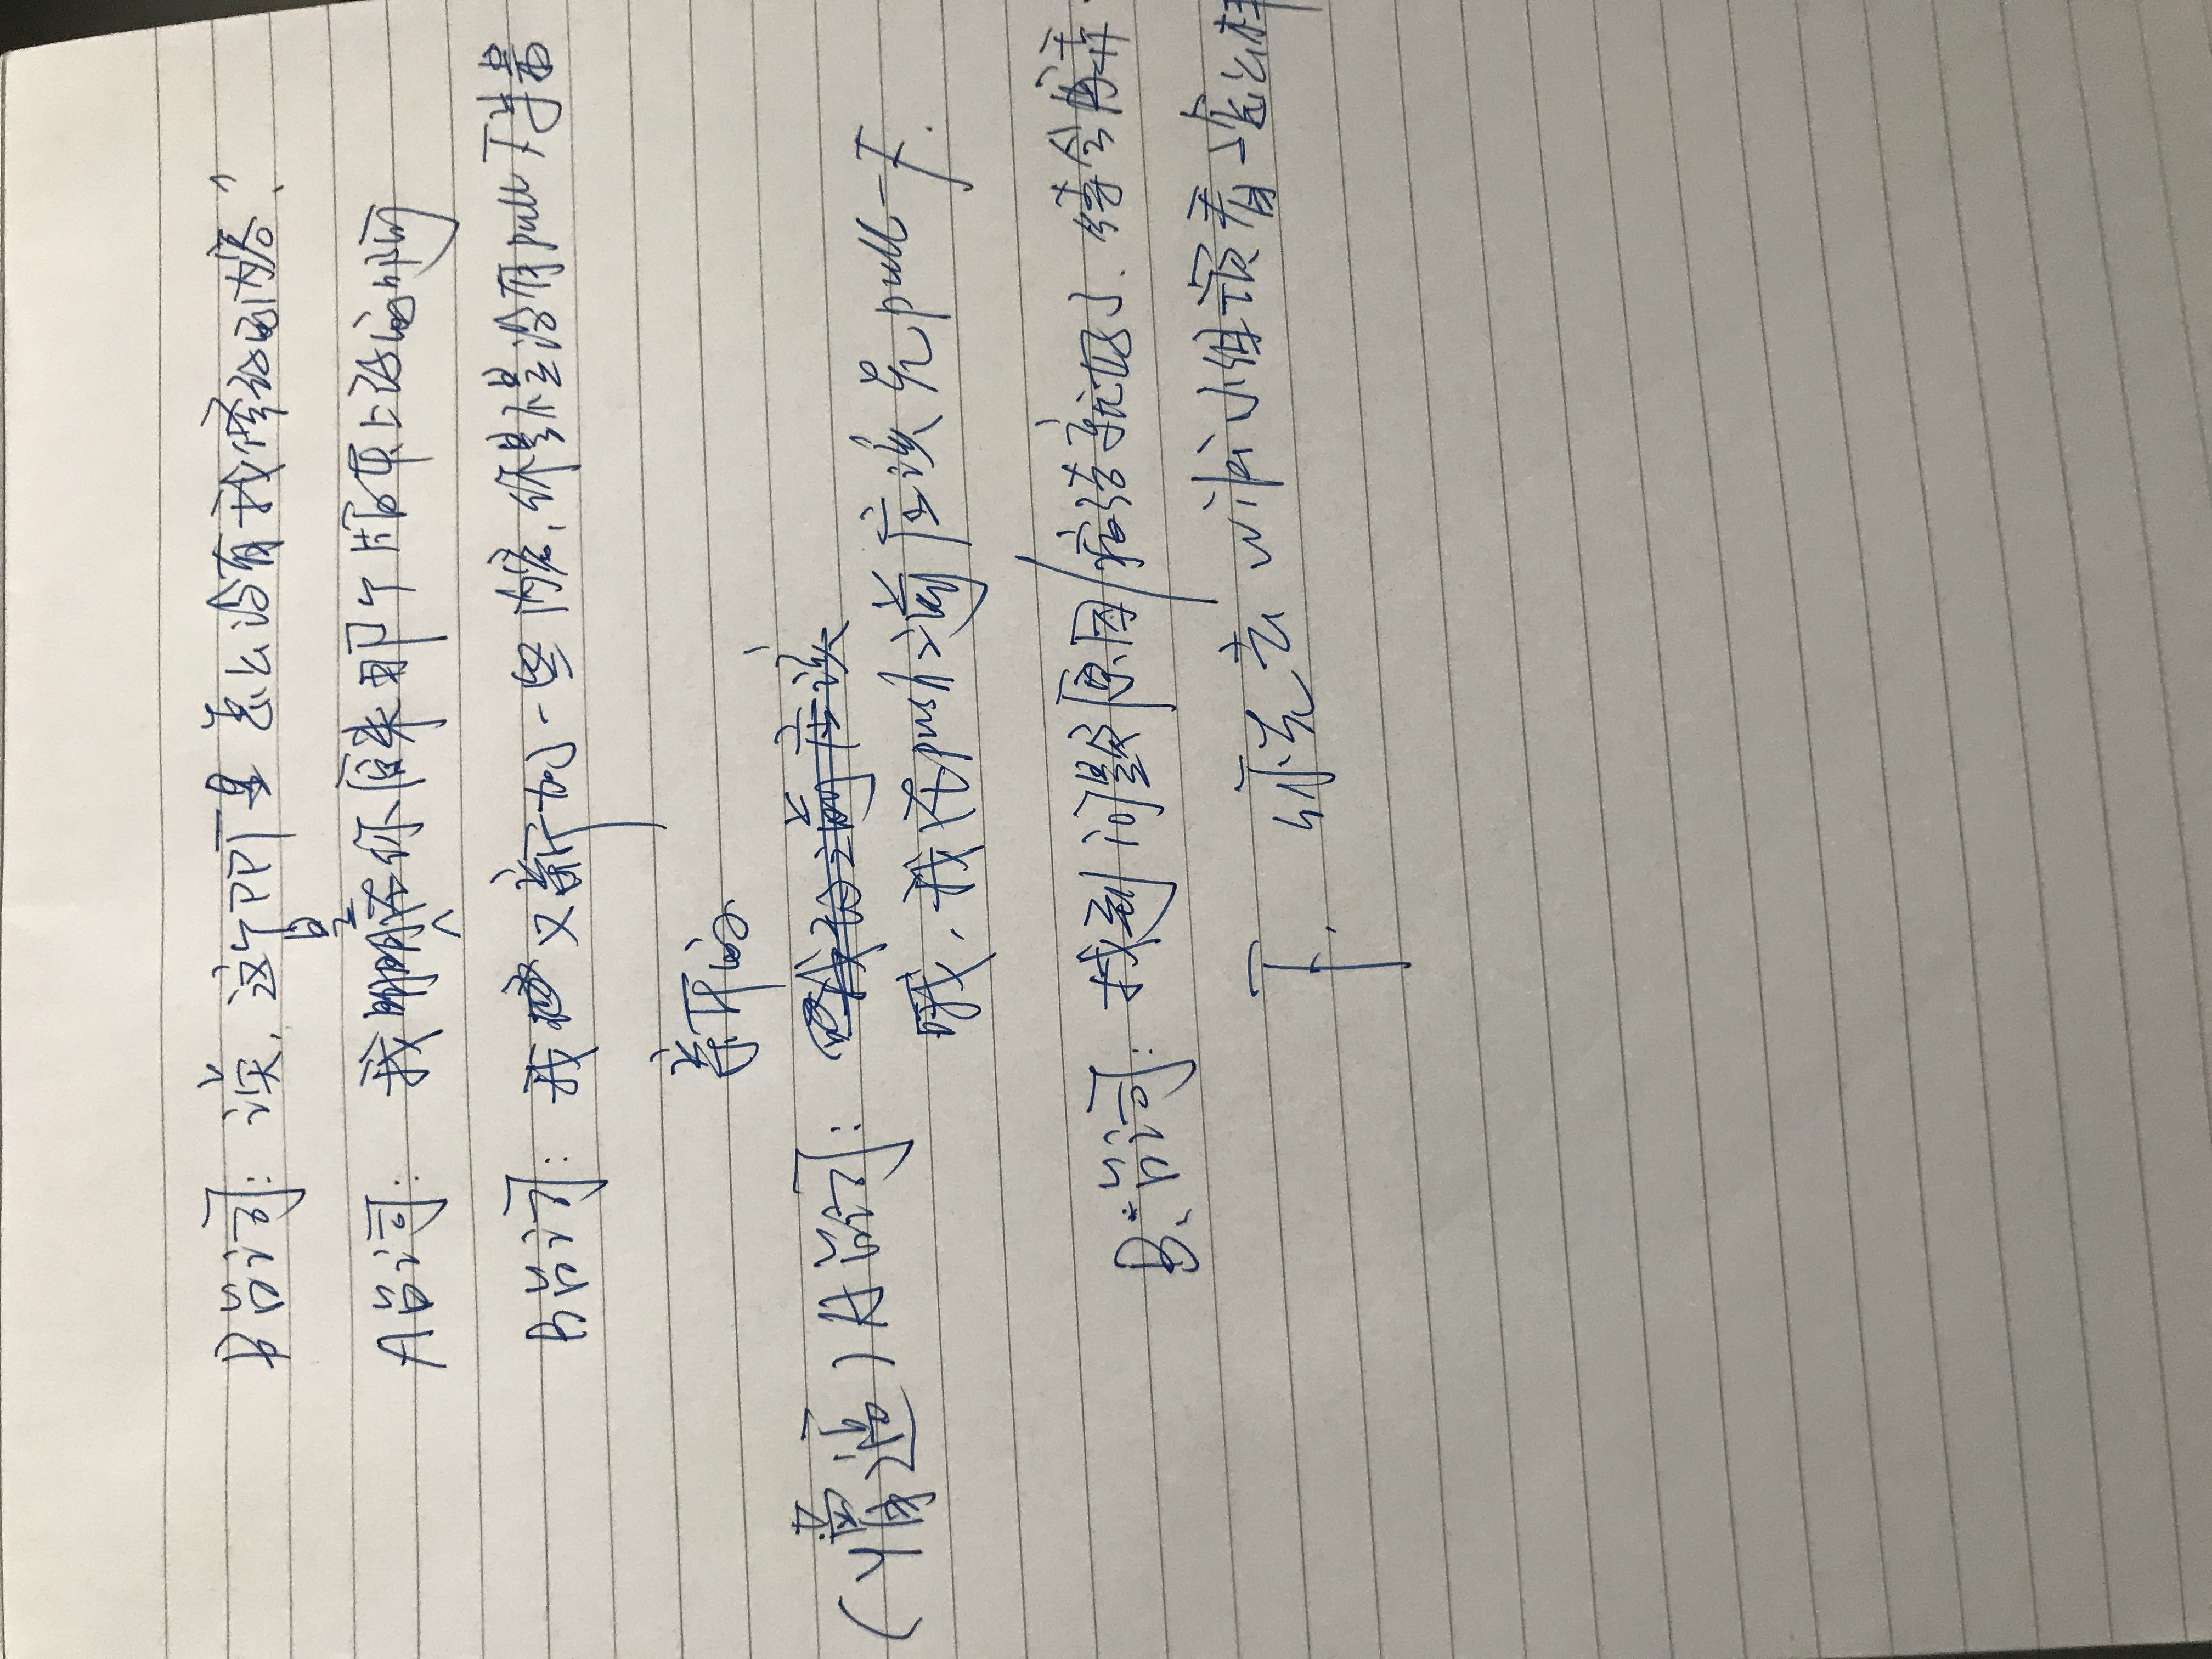 B台词: 诶, 这个PPT里怎么没有我修改的内容?
A台词: 我明明在你原来那个版本上改的啊
B台词: 我又新加一些内容, 你是不是没有pull下来最
新的
(懵逼)A台词: 我改之前应该
哦, 我在push之前应该先pull一下.
B.台词: 找到问题原因/症结就好了. 待会再弄
下, 你先去wiki小组频看怎么样